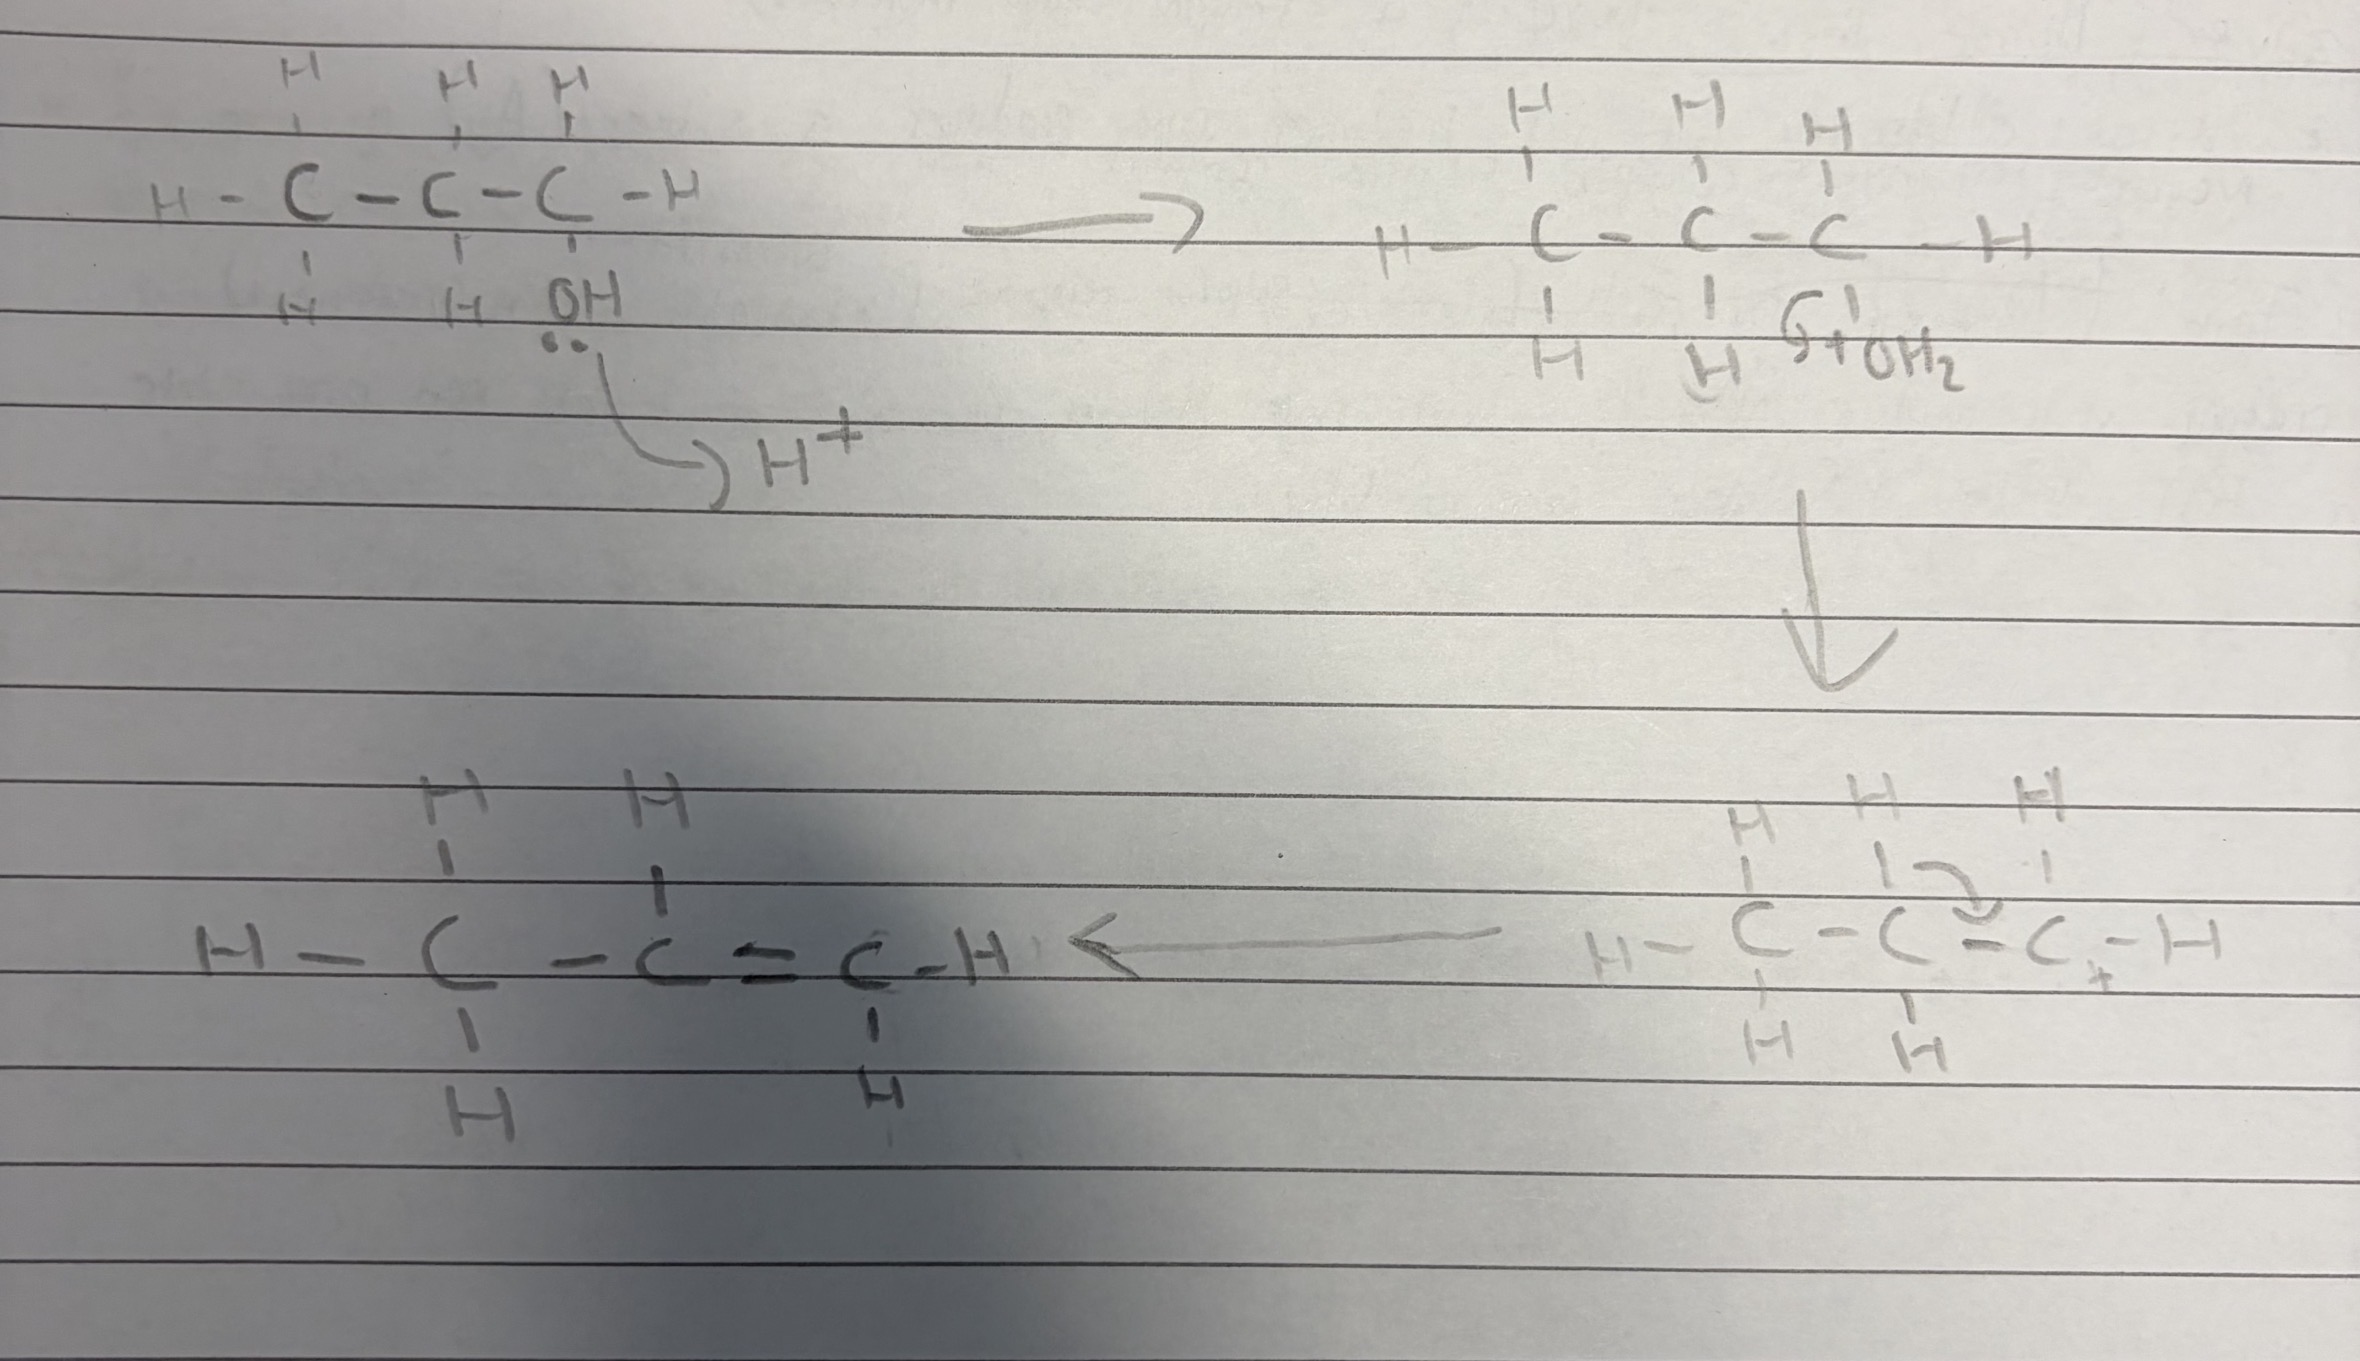 H H H
H - C - C - C - H
H H OH
••
H+
H H H
H - C - C - C - H
H H + OH2
H H H
H - C - C - C - H
+
H H
H H
H - C - C = C - H
H H